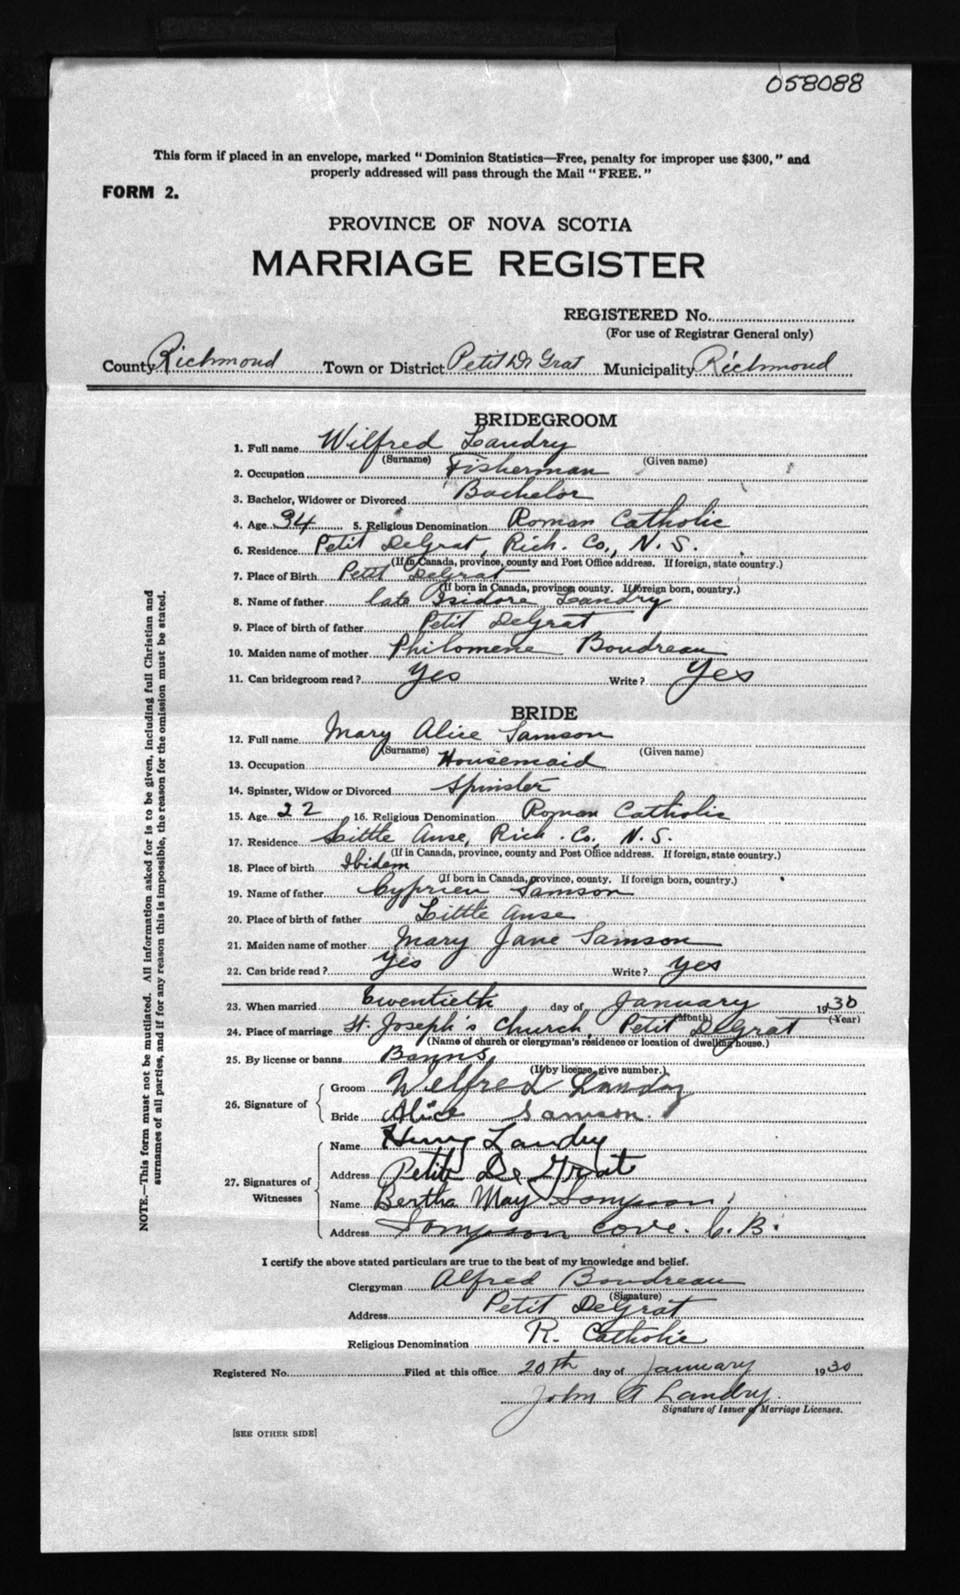 058088
This form if placed in an envelope, marked "Dominion Statistics—Free, penalty for improper use $300," and
properly addressed will pass through the Mail "FREE."
FORM 2.
PROVINCE OF NOVA SCOTIA
MARRIAGE REGISTER
REGISTERED No.
(For use of Registrar General only)
County Richmond Town or District Petit De Grat Municipality Richmond
BRIDEGROOM
1. Full name Wilfred Landry
(Surname) (Given name)
2. Occupation Fisherman
3. Bachelor, Widower or Divorced Bachelor
4. Age 34 5. Religious Denomination Roman Catholic
6. Residence Petit DeGrat, Rich. Co., N. S.
(If in Canada, province, county and Post Office address. If foreign, state country.)
7. Place of Birth Petit DeGrat
(If born in Canada, province, county. If foreign born, country.)
8. Name of father late Isidore Landry
9. Place of birth of father Petit DeGrat
10. Maiden name of mother Philomene Boudreau
11. Can bridegroom read? Yes Write? Yes
BRIDE
12. Full name Mary Alice Samson
(Surname) (Given name)
13. Occupation Housemaid
14. Spinster, Widow or Divorced Spinster
15. Age 22 16. Religious Denomination Roman Catholic
17. Residence Little Anse, Rich. Co, N. S.
(If in Canada, province, county and Post Office address. If foreign, state country.)
18. Place of birth Ibidem
(If born in Canada, province, county. If foreign born, country.)
19. Name of father Cyprien Samson
20. Place of birth of father Little Anse
21. Maiden name of mother Mary Jane Samson
22. Can bride read? Yes Write? Yes
23. When married twentieth day of January 1930
(Month) (Year)
24. Place of marriage St. Joseph's Church Petit DeGrat
(Name of church or clergyman's residence or location of dwelling house.)
25. By license or banns Banns
(If by license, give number.)
26. Signature of
Groom Wilfred Landry
Bride Alice Samson.
27. Signatures of Witnesses
Name Henry Landry
Address Petit De Grat
Name Bertha May Sampson
Address Sampson Cove. C. B.
I certify the above stated particulars are true to the best of my knowledge and belief.
Clergyman Alfred Boudreau
(Signature)
Address Petit DeGrat
Religious Denomination R. Catholic
Registered No. Filed at this office 20th day of January 1930
John A Landry.
Signature of Issuer of Marriage Licenses.
[SEE OTHER SIDE]
NOTE.—This form must not be mutilated. All information asked for is to be given, including full Christian and
surnames of all parties, and if for any reason this is impossible, the reason for the omission must be stated.